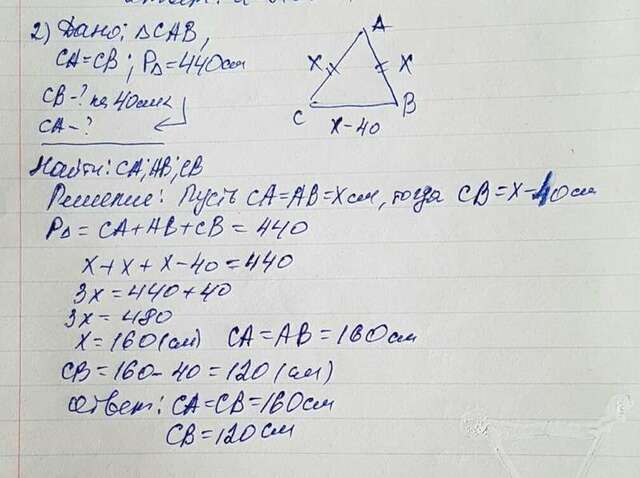 2) Дано: ΔCAB,
CA=CB; P∆=440см
CB-? на 40см<
CA-?
A
X
X
C
B
X-40
Найти: CA; AB; CB
Решение: Пусть CA=AB=Xсм, тогда CB=X-40см
P∆=CA+AB+CB=440
X+X+X-40=440
3X=440+40
3X=480
X=160(см) CA=AB=160см
CB=160-40=120(см)
Ответ: CA=CB=160см
CB=120см